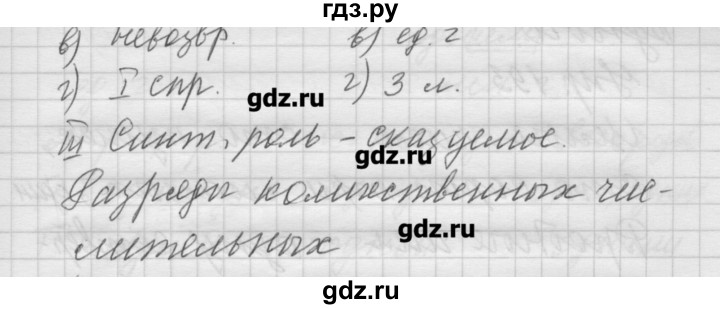 гдз.ру
в) невозвр. в) ед. ч
г) I спр. г) 3 л.
gdz.ru
III Синт. роль – сказуемое.
gdz.ru
Разряды количественных чис-
gdz.ru
лительных
gdz.ru